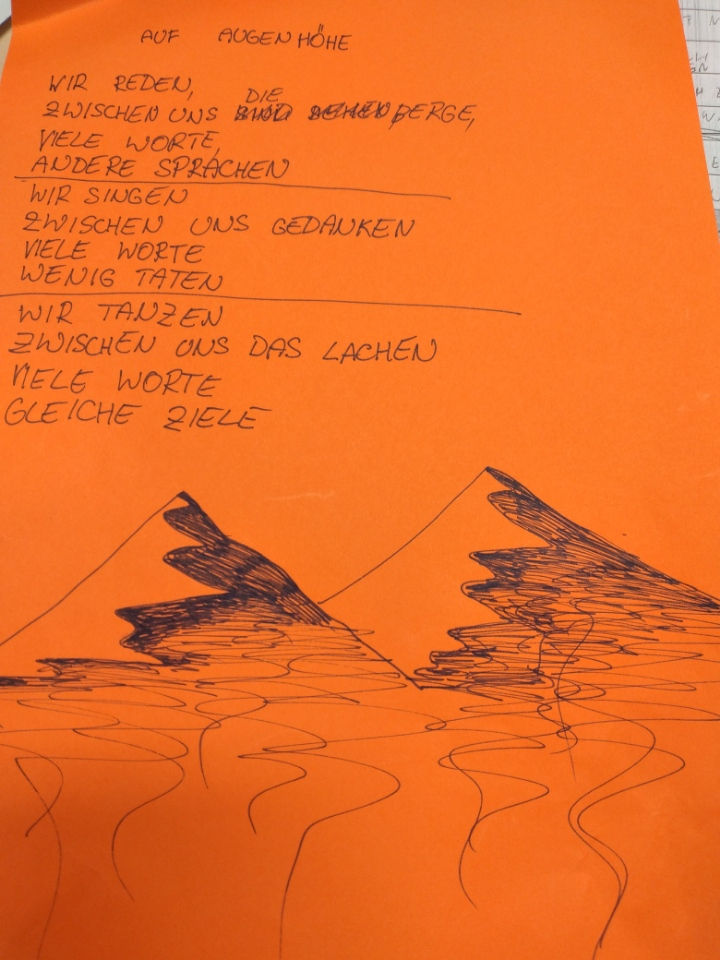 AUF AUGENHÖHE
WIR REDEN,
ZWISCHEN UNS DIE BERGE,
VIELE WORTE,
ANDERE SPRACHEN
WIR SINGEN
ZWISCHEN UNS GEDANKEN
VIELE WORTE
WENIG TATEN
WIR TANZEN
ZWISCHEN UNS DAS LACHEN
VIELE WORTE
GLEICHE ZIELE